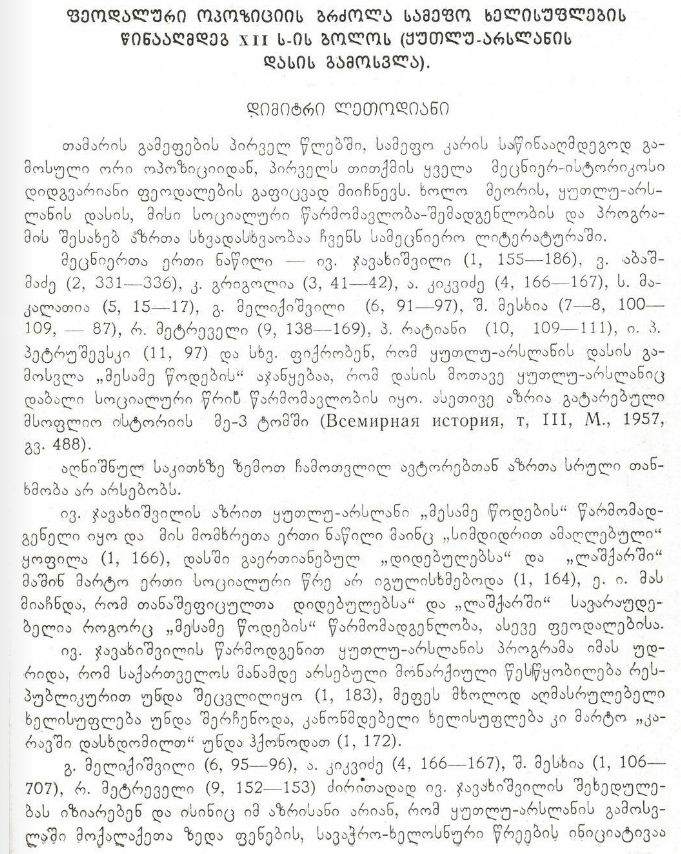 ფეოდალური ოპოზიციის ბრძოლა სამეფო ხელისუფლების
წინააღმდეგ XII ს-ის ბოლოს (ყუთლუ-არსლანის
დასის გამოსვლა).
დიმიტრი ლეთოდიანი
თამარის გამეფების პირველ წლებში, სამეფო კარის საწინააღმდეგოდ გა-
მოსული ორი ოპოზიციიდან, პირველს თითქმის ყველა მეცნიერ-ისტორიკოსი
დიდგვარიანი ფეოდალების გაფიცვად მიიჩნევს. ხოლო მეორის, ყუთლუ-არს-
ლანის დასის, მისი სოციალური წარმომავლობა-შემადგენლობის და პროგრა-
მის შესახებ აზრთა სხვადასხვაობაა ჩვენს სამეცნიერო ლიტერატურაში.
მეცნიერთა ერთი ნაწილი — ივ. ჯავახიშვილი (1, 155—186), ვ. აბაშ-
მაძე (2, 331—336), კ. გრიგოლია (3, 41—42), ა. კიკვიძე (4, 166—167), ს. მა-
კალათია (5, 15—17), გ. მელიქიშვილი (6, 91—97), შ. მესხია (7—8, 100—
109, — 87), რ. მეტრეველი (9, 138—169), პ. რატიანი (10, 109—111), ი. პ.
პეტრუშევსკი (11, 97) და სხვ. ფიქრობენ, რომ ყუთლუ-არსლანის დასის გა-
მოსვლა „მესამე წოდების“ აჯანყებაა, რომ დასის მოთავე ყუთლუ-არსლანიც
დაბალი სოციალური წრის წარმომავლობის იყო. ასეთივე აზრია გატარებული
მსოფლიო ისტორიის მე-3 ტომში (Всемирная история, т, III, М., 1957,
გვ. 488).
აღნიშნულ საკითხზე ზემოთ ჩამოთვლილ ავტორებთან აზრთა სრული თან-
ხმობა არ არსებობს.
ივ. ჯავახიშვილის აზრით ყუთლუ-არსლანი „მესამე წოდების“ წარმომად-
გენელი იყო და მის მომხრეთა ერთი ნაწილი მაინც „სიმდიდრით ამაღლებული“
ყოფილა (1, 166), დასში გაერთიანებულ „დიდებულებსა“ და „ლაშქარში“
მაშინ მარტო ერთი სოციალური წრე არ იგულისხმებოდა (1, 164), ე. ი. მას
მიაჩნდა, რომ თანაშეფიცულთა დიდებულებსა“ და „ლაშქარში“ სავარაუდე-
ბელია როგორც „მესამე წოდების“ წარმომადგენლობა, ასევე ფეოდალებისა.
ივ. ჯავახიშვილის წარმოდგენით ყუთლუ-არსლანის პროგრამა იმას უდ-
რიდა, რომ საქართველოს მანამდე არსებული მონარქიული წესწყობილება რეს-
პუბლიკურით უნდა შეცვლილიყო (1, 183), მეფეს მხოლოდ აღმასრულებელი
ხელისუფლება უნდა შერჩენოდა, კანონმდებელი ხელისუფლება კი მარტო „კა-
რავში დასხდომილთ“ უნდა ჰქონოდათ (1, 172).
გ. მელიქიშვილი (6, 95—96), ა. კიკვიძე (4, 166—167), შ. მესხია (1, 106—
707), რ. მეტრეველი (9, 152—153) ძირითადად ივ. ჯავახიშვილის შეხედულე-
ბას იზიარებენ და ისინიც იმ აზრისანი არიან, რომ ყუთლუ-არსლანის გამოსვ-
ლაში მოქალაქეთა ზედა ფენების, სავაჭრო-ხელოსნური წრეების ინიციატივაა